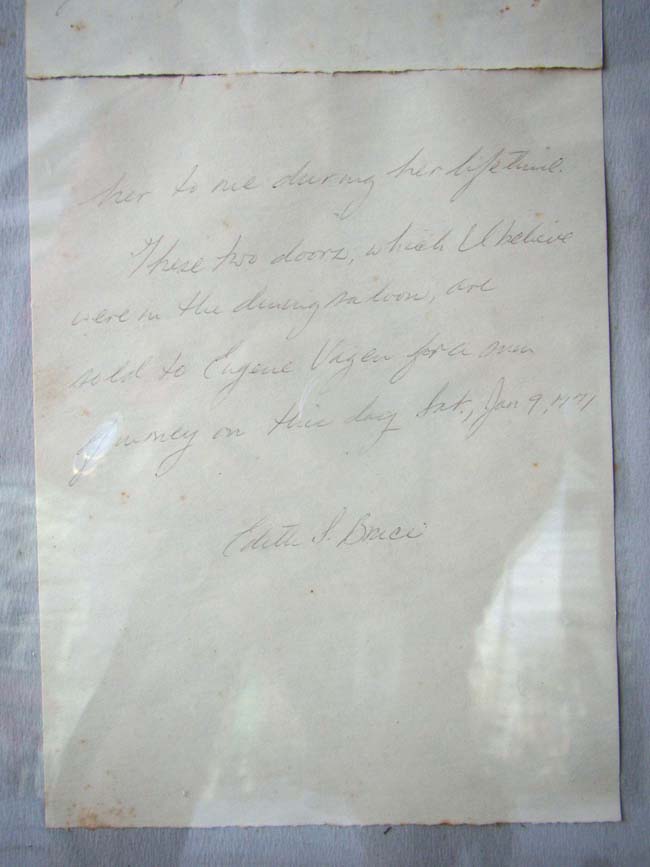 her to me during her lifetime.
These two doors, which I believe
were in the dining saloon, are
sold to Eugene for a sum
of money on this day Sat., Jan 9, 1971
Edith S. Bruce